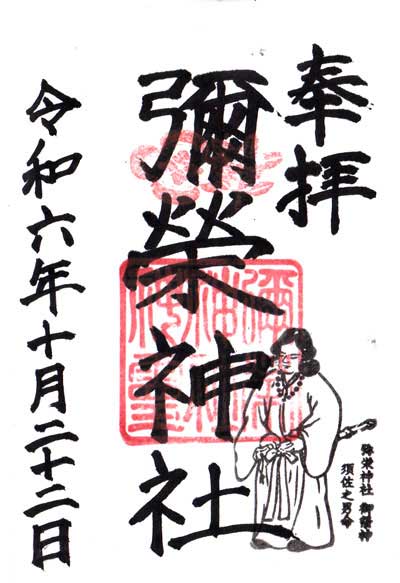 奉拝
彌榮神社
弥栄神社 御諸神
須佐之男命
令和六年十月二十二日